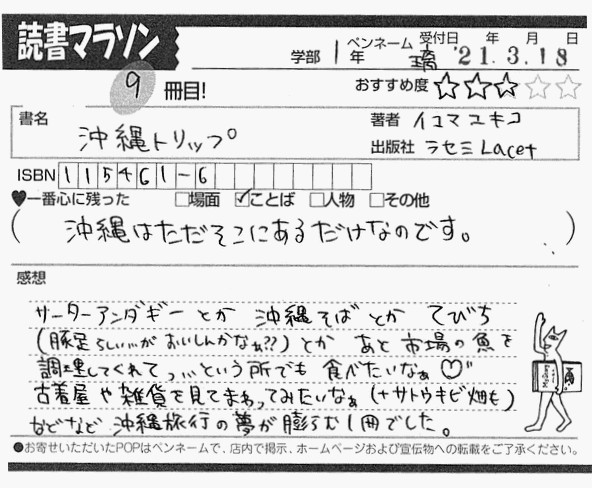 読書マラソン
学部 1年 ペンネーム 璃 受付日 年 月 日 '21.3.18
9冊目!
おすすめ度 ☆☆☆☆☆
書名 沖縄トリップ
著者 イコマユキコ
出版社 ラセミLacet
ISBN 115461-6
♥一番心に残った □場面 ☑ことば □人物 □その他
(沖縄はただそこにあるだけなのです。)
感想
サーターアンダギーとか 沖縄そばとか てびち
(豚足らしいがおいしんかなぁ??)とか あと 市場の魚を
調理してくれてっ、、という所でも 食べたいなぁ♡"
古着屋や雑貨を見てまわってみたいなぁ(+サトウキビ畑も)
などなど 沖縄旅行の夢が膨らむ1冊でした。
●お寄せいただいたPOPはペンネームで、店内で掲示、ホームページおよび宣伝物への転載をご了承ください。